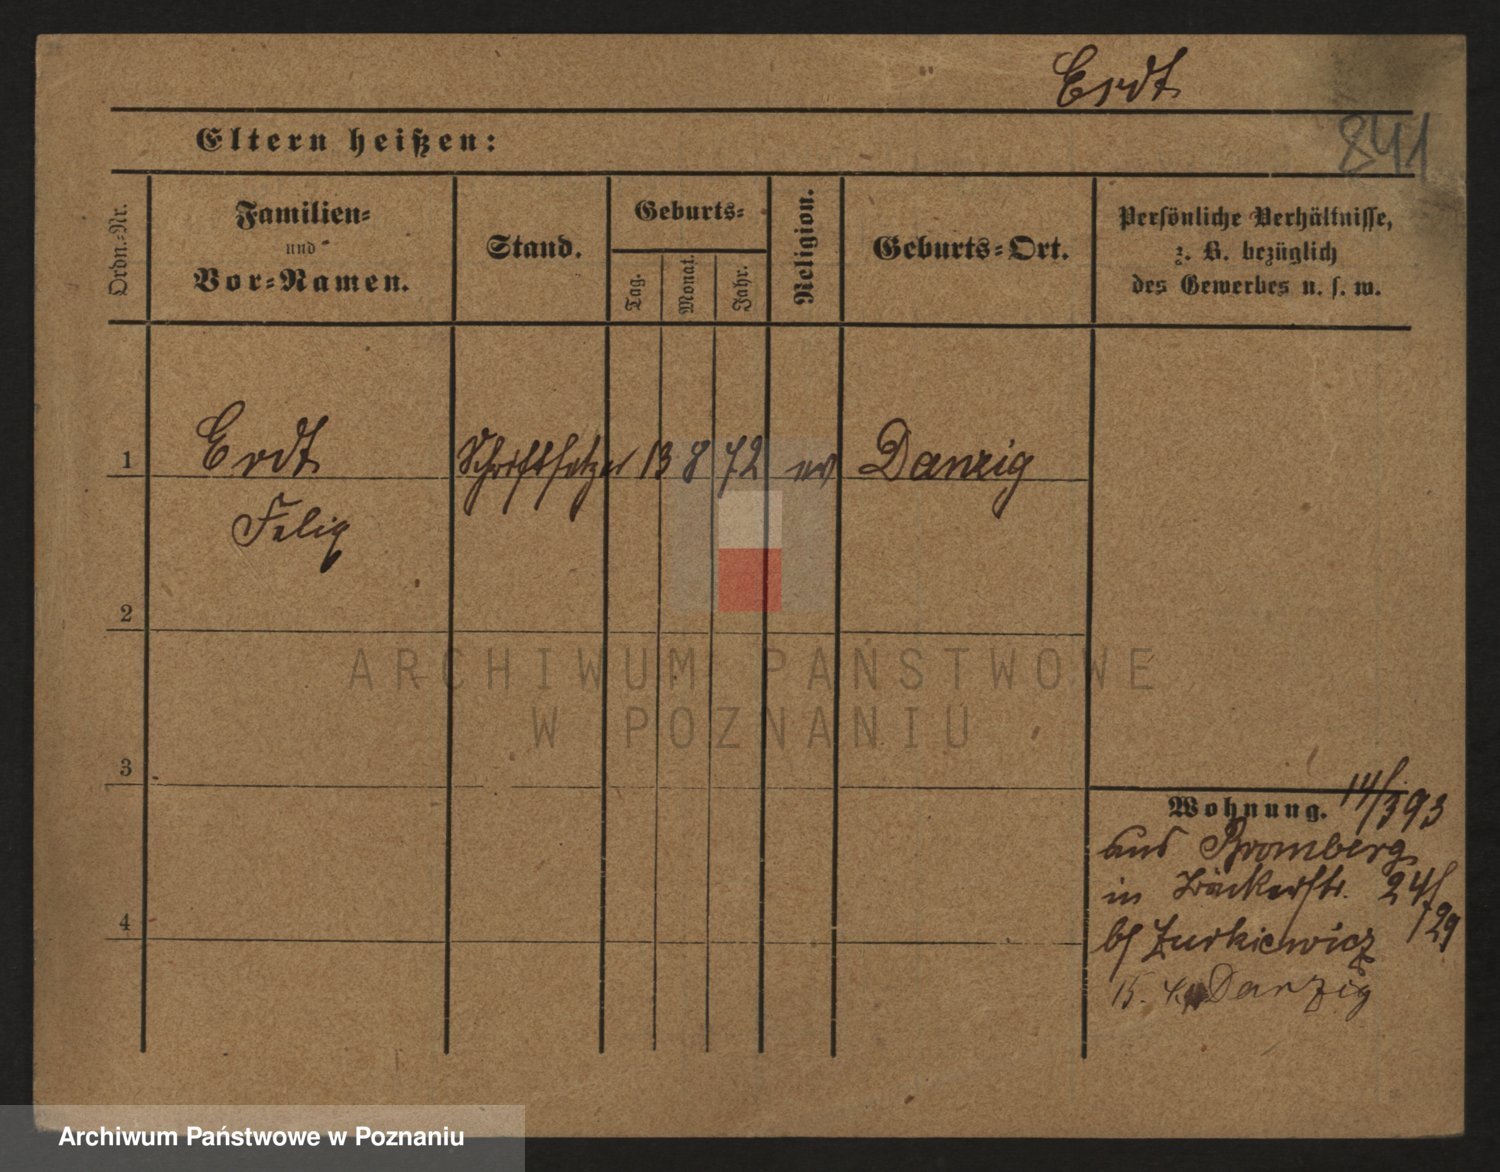 Erdt
841
Eltern heißen:
Ordn.-Nr.
Familien-
und
Vor-Namen.
Stand.
Geburts-
Tag.
Monat.
Jahr.
Religion.
Geburts-Ort.
Persönliche Verhältnisse,
z. B. bezüglich
des Gewerbes u. s. w.
1
Erdt Schriftsetzer 13 8 72 ev Danzig
Felix
2
ARCHIWUM PAŃSTWOWE
W POZNANIU
3
Wohnung. 14/3 93
aus Bromberg
in Bäckerstr. 24/
29
4
b/ Zurkiewicz
15. 4. Danzig
Archiwum Państwowe w Poznaniu